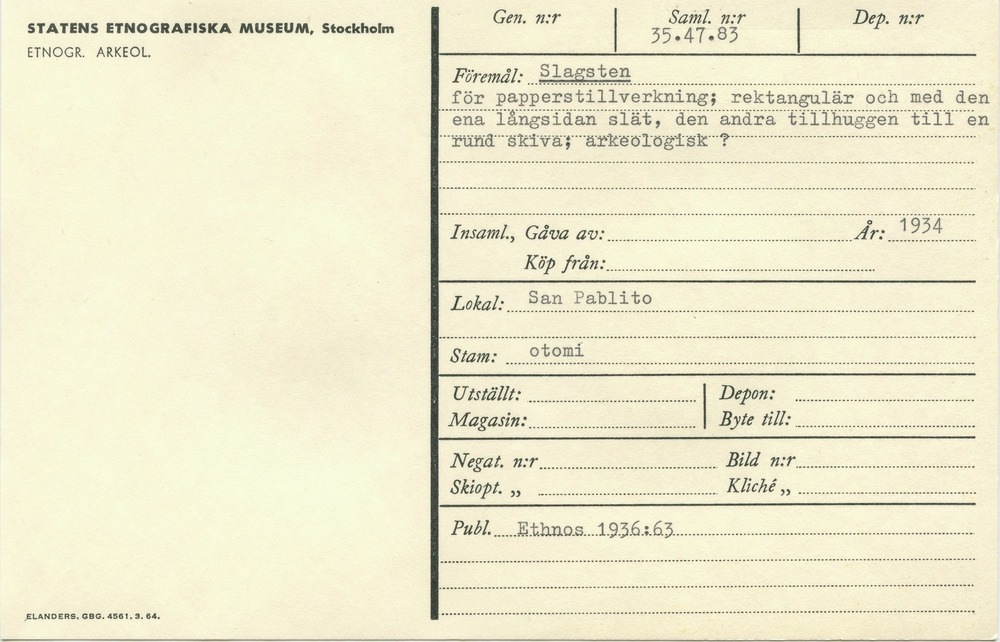 STATENS ETNOGRAFISKA MUSEUM, Stockholm
ETNOGR. ARKEOL.
Gen. n:r Saml. n:r Dep. n:r
35.47.83
Föremål: Slagsten
för papperstillverkning; rektangulär och med den
ena långsidan slät, den andra tillhuggen till en
rund skiva; arkeologisk ?
Insaml., Gåva av: År: 1934
Köp från:
Lokal: San Pablito
Stam: otomí
Utställt: Depon:
Magasin: Byte till:
Negat. n:r Bild n:r
Skiopt. „ Kliché „
Publ. Ethnos 1936:63
ELANDERS, GBG. 4561. 3. 64.